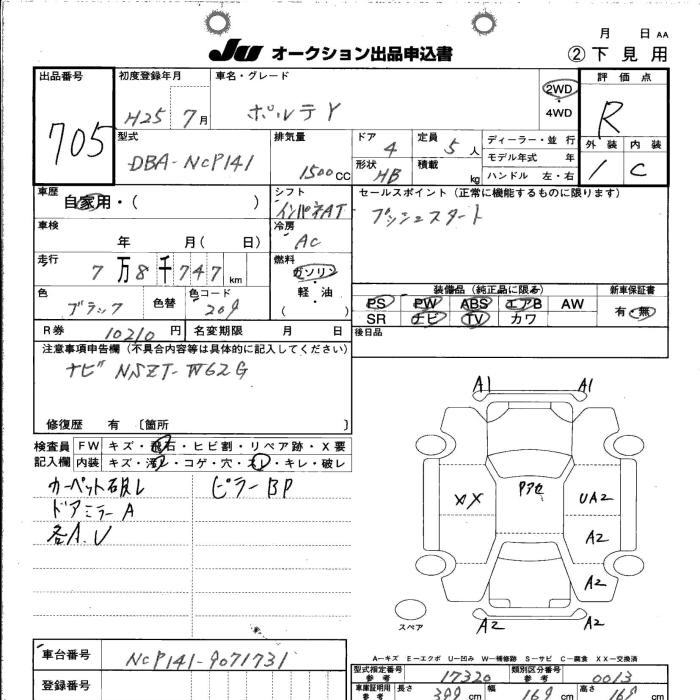 月 日 AA
JU オークション出品申込書 ②下見用
出品番号 初度登録年月 車名・グレード 評価点
705 H25 7月 ポルテY 2WD ・ 4WD R
型式 排気量 ドア 定員 ディーラー・並行 外装 内装
DBA-NCP141 1500CC 4 5人 モデル年式 年 1 C
形状 積載 ハンドル 左・右
HB kg
車歴 シフト セールスポイント（正常に機能するものに限ります）
自家用・（ ） インパネAT プッシュスタート
車検 冷房
年 月（ 日） AC
走行 燃料
7万8千747km ガソリン
色 色替 色コード 軽・油
ブラック 209 （ ・ ）
装備品（純正品に限る） 新車保証書
PS PW ABS エアB AW 有・無
SR ナビ TV カワ
R券 10210円 名変期限 月 日 後日品
注意事項申告欄（不具合内容等は具体的に記入してください）
ナビ NSZT-W62G
修復歴 有 〔箇所 〕
検査員 FW キズ・飛石・ヒビ割・リペア跡・X要
記入欄 内装 キズ・汚レ・コゲ・穴・スレ・キレ・破レ
カーペット破レ ピラーBP
ドアミラーA
各A.U
A1 A1
XX Pアセ UA2
A2
A2
スペア A2 A2
A－キズ E－エクボ U－凹み W－補修跡 S－サビ C－腐食 XX－交換済
車台番号 NCP141-9071731
型式指定番号 参考 17320 類別区分番号 参考 0013
登録番号 車庫証明用 参考 長さ 399cm 幅 169cm 高さ 169cm